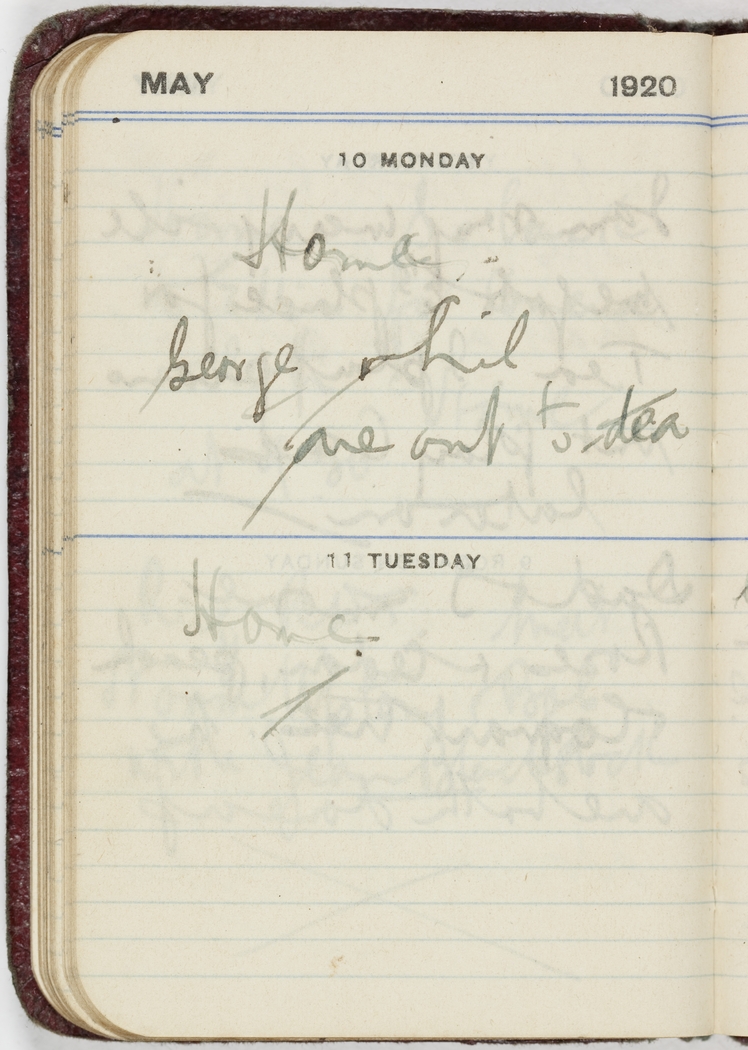 MAY 1920
10 MONDAY
Home
George Phil
are out to tea
11 TUESDAY
Home